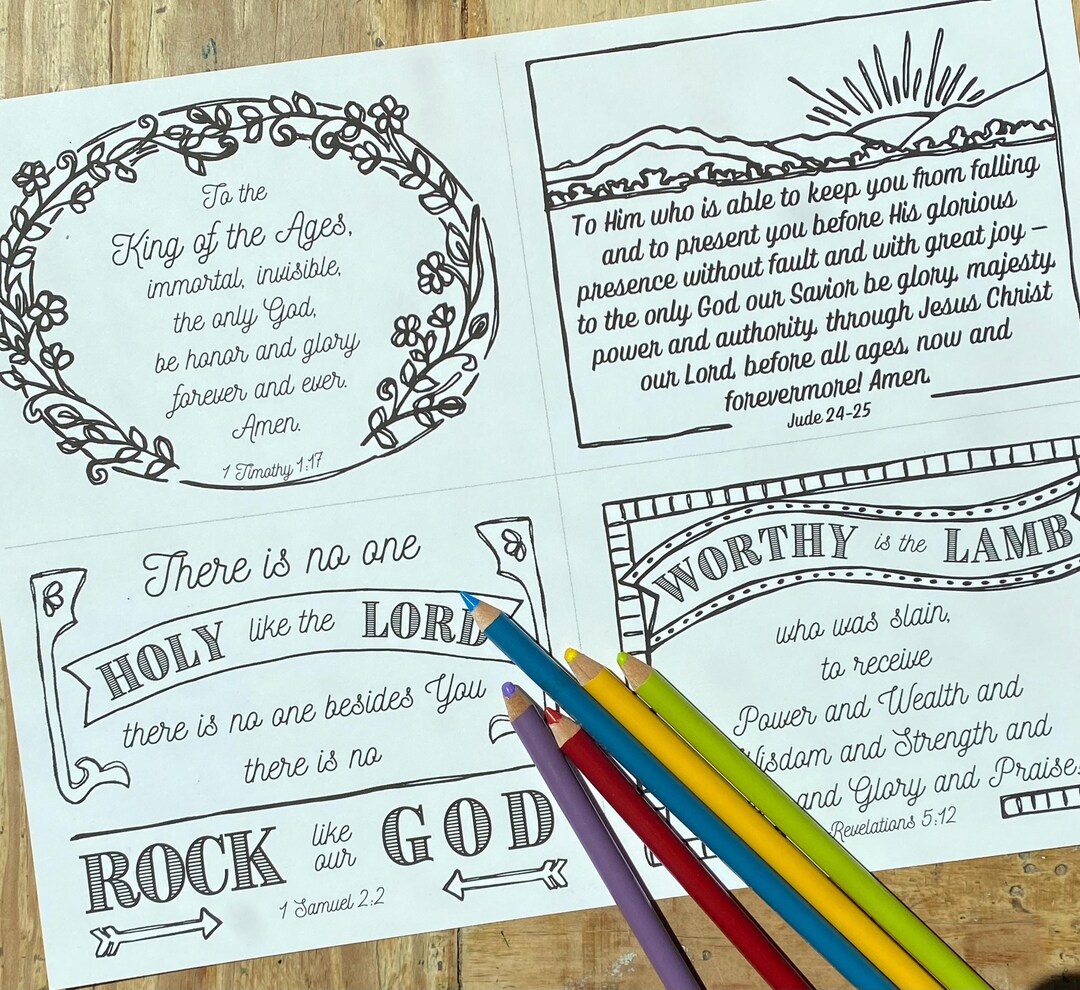 To the
King of the Ages,
immortal, invisible,
the only God,
be honor and glory
forever and ever.
Amen.
1 Timothy 1:17
To Him who is able to keep you from falling
and to present you before His glorious
presence without fault and with great joy –
to the only God our Savior be glory, majesty,
power and authority, through Jesus Christ
our Lord, before all ages, now and
forevermore! Amen.
Jude 24-25
There is no one
HOLY like the LORD
there is no one besides You
there is no
ROCK like our GOD
1 Samuel 2:2
WORTHY is the LAMB
who was slain,
to receive
Power and Wealth and
Wisdom and Strength and
and Glory and Praise!
Revelations 5:12